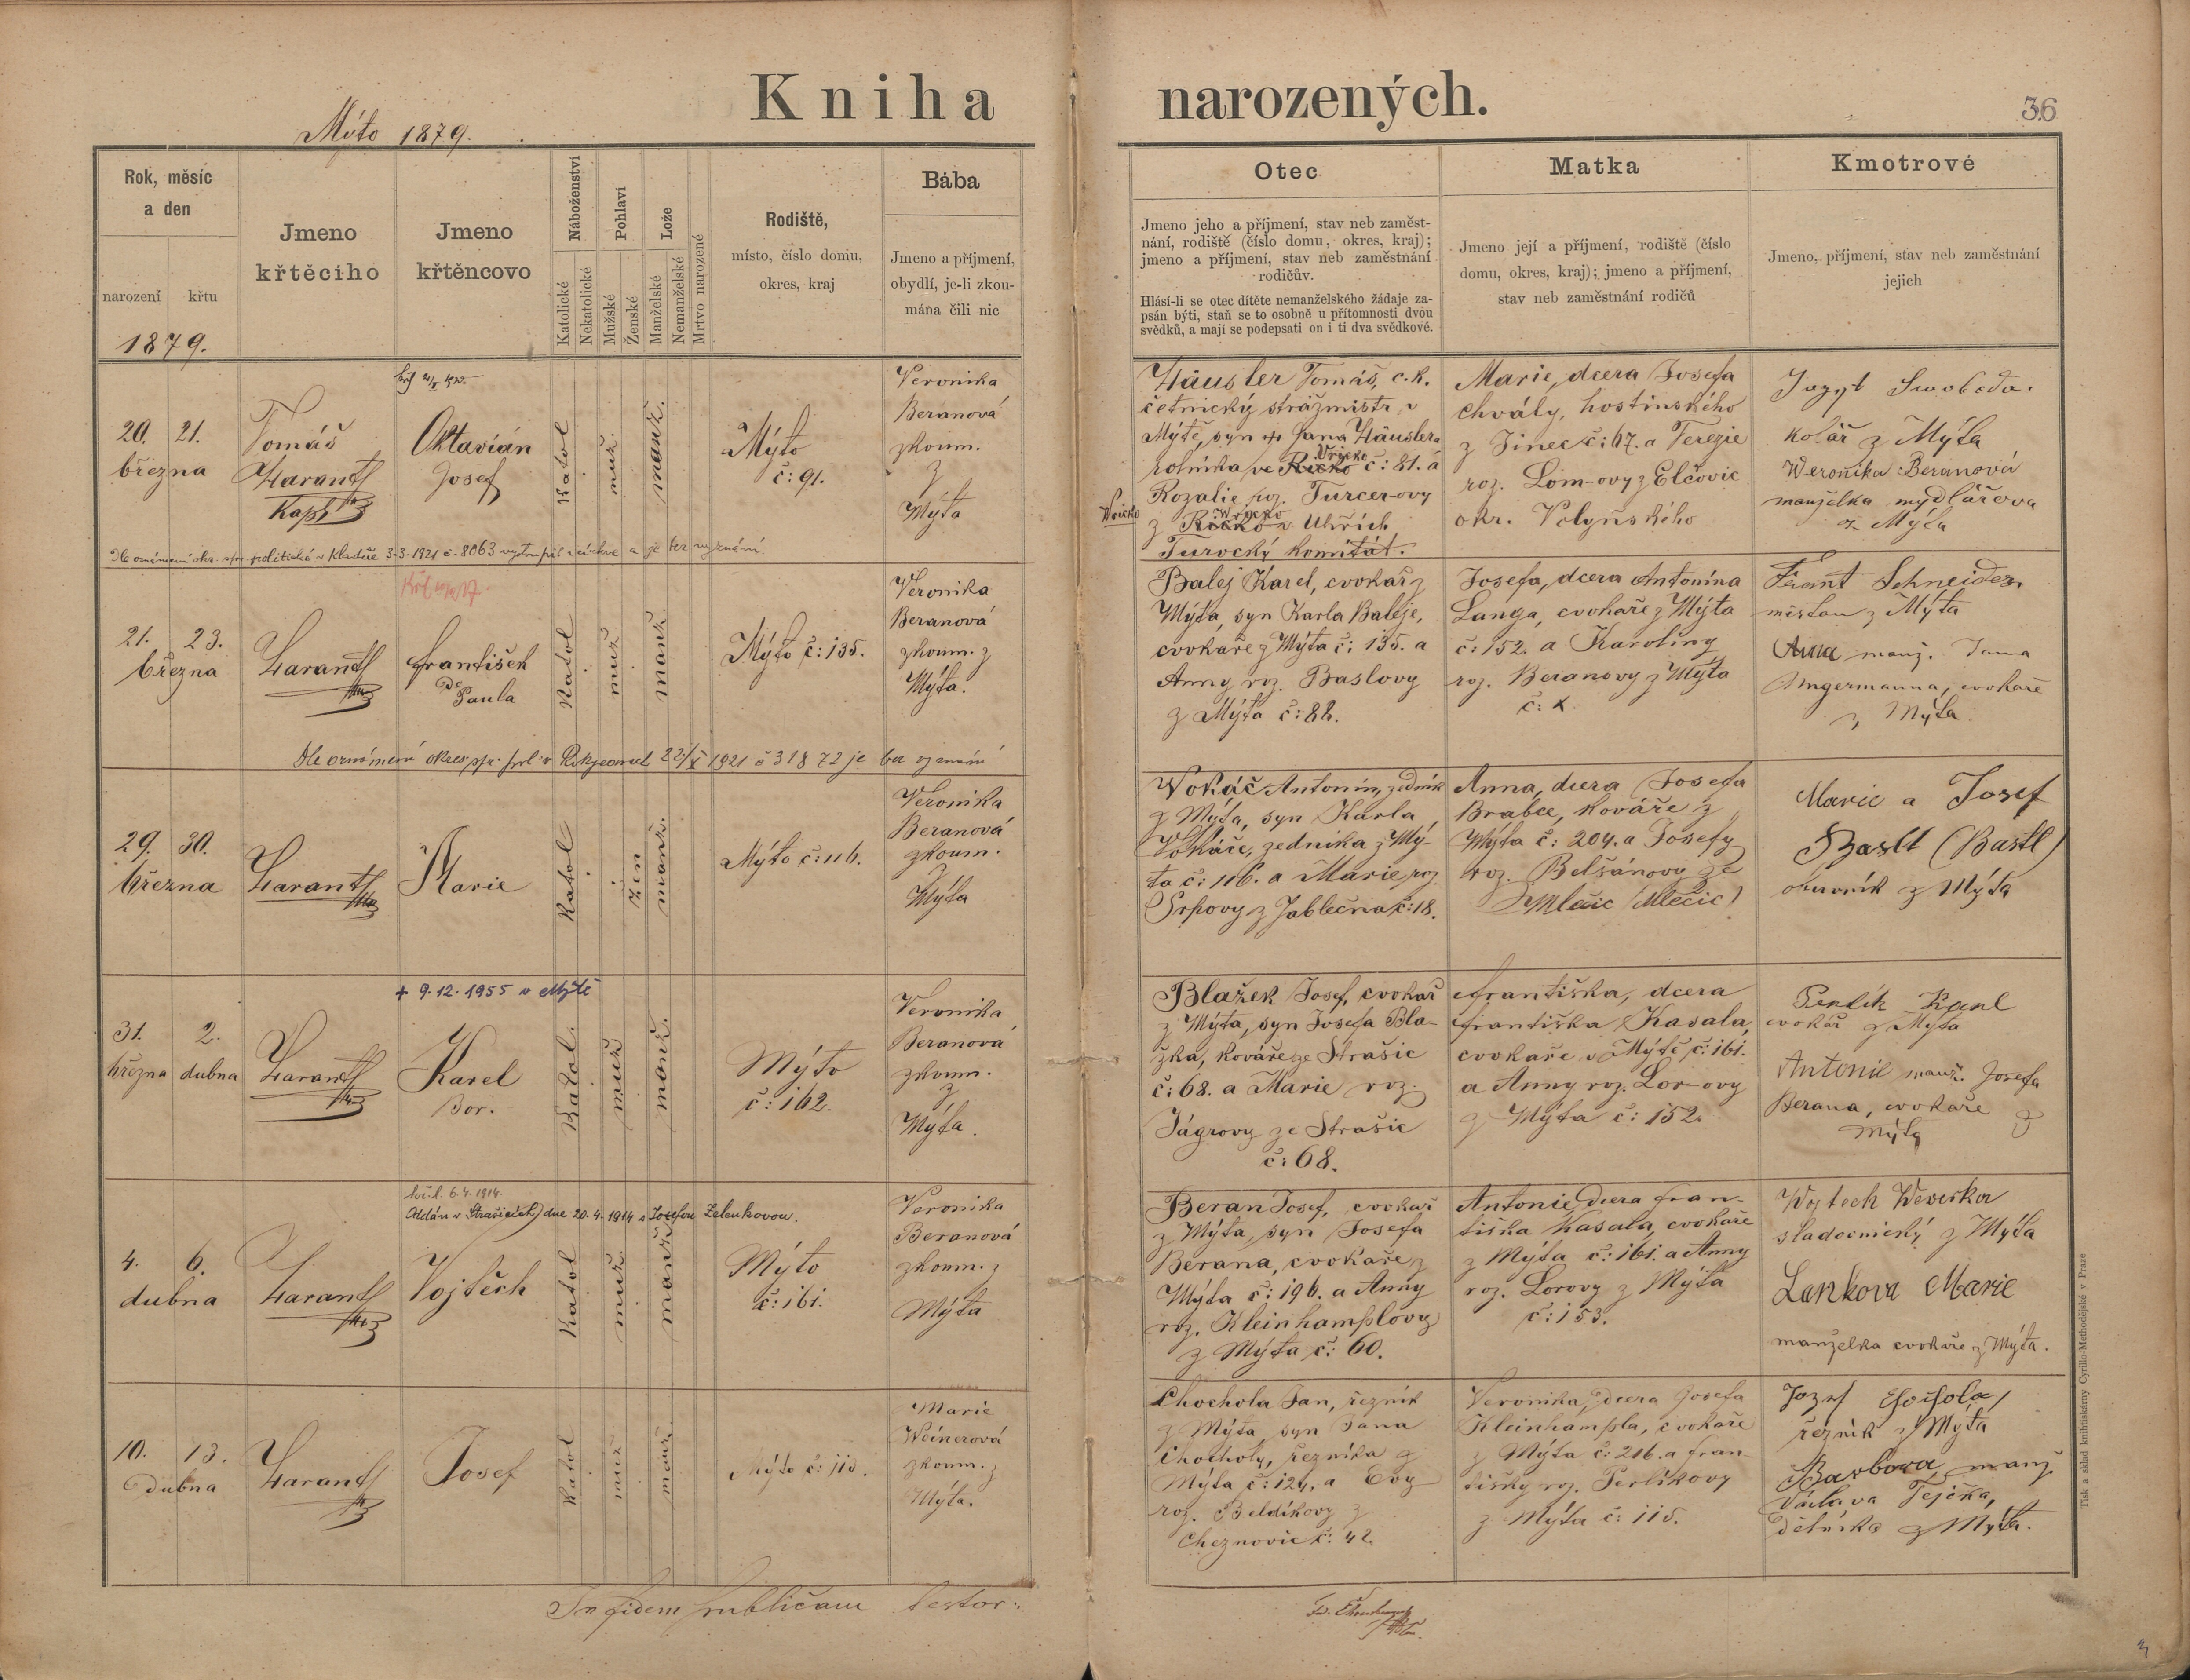 Kniha narozených.
Mýto 1879.
36
Rok, měsíc
a den
narození
křtu
1879.
Jmeno
křtěcího
Jmeno
křtěncovo
Náboženství
Katolické
Nekatolické
Pohlaví
Mužské
Ženské
Lože
Manželské
Nemanželské
Mrtvo narozené
Rodiště,
místo, číslo domu,
okres, kraj
Bába
Jmeno a příjmení,
obydlí, je-li zkou-
mána čili nic
Otec
Jmeno jeho a příjmení, stav neb zaměst-
nání, rodiště (číslo domu, okres, kraj);
jmeno a příjmení, stav neb zaměstnání
rodičův.
Hlásí-li se otec dítěte nemanželského žádaje za-
psán býti, staň se to osobně u přítomnosti dvou
svědků, a mají se podepsati on i ti dva svědkové.
Matka
Jmeno její a příjmení, rodiště (číslo
domu, okres, kraj); jmeno a příjmení,
stav neb zaměstnání rodičů
Kmotrové
Jmeno, příjmení, stav neb zaměstnání
jejich
20. 21.
března
Tomáš
Harantt
Kapl.
Oktavián
Josef
Katol
muž.
manž.
Mýto
č: 91.
Veronika
Beranová
zkoum.
z
Mýta
Häusler Tomáš, c.k.
četnický strážmistr v
Mýtě, syn † Jana Häuslera
rolníka ve Vricko č: 81. a
Rozalie roz. Turcer-ovy
z Wricko v Uhřích
Turocký komitát.
Wricko
Marie, dcera Josefa
Chvály, hostinského
z Jinec č: 67. a Terezie
roz. Lom-ovy z Elčovic
okr. Volyňského
Swoboda.
kolář z Mýta
Weronika Beranová
manželka mydlářova
z Mýta
3.3.1921 č. 8063
21. 23.
března
Harantt
František
de
Paula
Katol
muž
manž
Mýto č: 135.
Veronika
Beranová
zkoum. z
Mýta.
Balej Karel, cvokař z
Mýta, syn Karla Baleje,
cvokaře z Mýta č: 135. a
Anny roz. Baslovy
z Mýta č: 82.
Josefa, dcera Antonína
Langa, cvokaře z Mýta
č: 152. a Karoliny
roz. Beranovy z Mýta
Frant Schneider
měšťan z Mýta
Anna manž. Jana
Angermanna, cvokaře
z Mýta.
1921 č 31872 je bez vyznání
29. 30.
března
Harantt
Marie
Katol
žen
manž.
Mýto č: 116.
Veronika
Beranová
zkoum.
z
Mýta
Wokáč Antonín, zedník
z Mýta, syn Karla
Vokáče, zedníka z Mý-
ta č: 116. a Marie roz.
Srpovy z Jablečna č: 18.
Anna, dcera Josefa
Brabce, kováře z
Mýta č: 204. a Josefy
roz. Belšánovy ze
Mlečic (Mlečic)
Marie a Josef
Baslt (Bastl)
obuvník z Mýta
+ 9.12.1955 v Mýtě
31. 2.
března dubna
Harantt
Karel
Bor.
Katol.
muž
manž.
Mýto
č: 162.
Veronika
Beranová
zkoum.
z
Mýta.
Blažek Josef, cvokař
z Mýta, syn Josefa Bla-
žka, kováře ze Strašic
č: 68. a Marie roz.
Jágrovy ze Strašic
č: 68.
Františka, dcera
Františka Kasala,
cvokaře v Mýtě č: 161.
a Anny roz. Lor-ovy
z Mýta č: 152.
Perlík Karl
cvokář z Mýta
Antonie manž. Josefa
Berana, cvokaře z
Mýta
6.4.1914.
Oddán v Strašicích dne 20.4.1914 s Josefou Zelenkovou.
4. 6.
dubna
Harantt
Vojtěch
Katol
muž
manž
Mýto
č: 161.
Veronika
Beranová
zkoum. z
Mýta
Beran Josef, cvokař
z Mýta, syn Josefa
Berana, cvokaře z
Mýta č: 196. a Anny
roz. Kleinhamplovy
z Mýta č: 60.
Antonie, dcera Fran-
tiška Kasala, cvokaře
z Mýta č: 161. a Anny
roz. Lorovy z Mýta
č: 153.
Wojtech Weverka
sladovnický z Mýta
Lankova Marie
manželka cvokaře z Mýta.
10. 13.
dubna
Harantt
Josef
Katol
muž
manž
Mýto č: 115.
Marie
Weinerová
zkoum. z
Mýta.
Chochola Jan, řezník
z Mýta, syn Jana
Chocholy, řezníka z
Mýta č: 124. a Evy
roz. Beldíkovy z
Cheznovic č: 42.
Veronika, dcera Josefa
Kleinhampla, cvokaře
z Mýta č: 216. a Fran-
tišky roz. Perlíkovy
z Mýta č: 115.
Jozef Chochola,
řezník z Mýta
Barbora, manž.
Václava Tejčka,
dělníka z Mýta.
In fidem publicam testor:
Tisk a sklad knihtiskárny Cyrillo-Methodějské v Praze